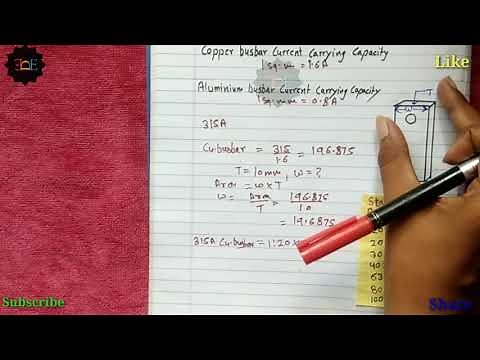 Like
Copper busbar Current Carrying Capacity
1 sq.mm = 1.6A
Aluminium busbar Current Carrying Capacity
1 sq.mm = 0.8A
T
W
315A
Cu.busbar = 315/1.6 = 196.875
T = 10mm, W = ?
Area = W x T
W = Area/T = 196.875/10
= 19.6875
315A Cu.busbar = 1:20x
20
30
40
63
80
100
Subscribe
Share